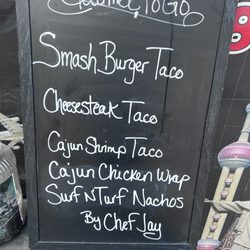 Gourmet To Go
Smash Burger Taco
Cheesesteak Taco
Cajun Shrimp Taco
Cajun Chicken Wrap
Surf N Turf Nachos
By Chef Jay